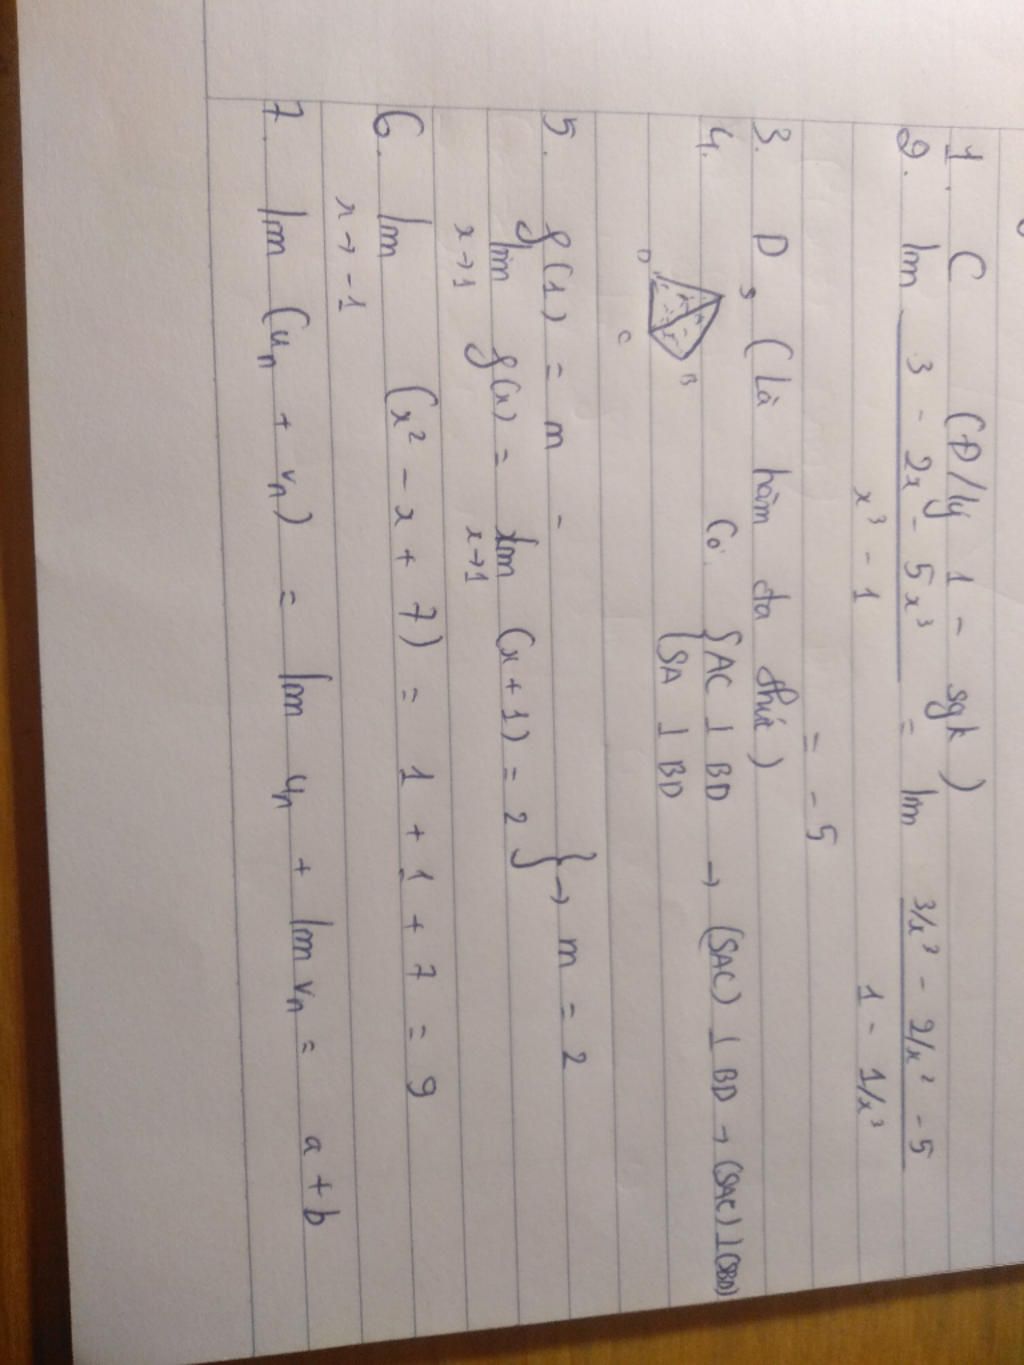 1. C (Đ/lý 1 - sgk)
2. lim 3 - 2x - 5x³ / x³ - 1 = lim 3/x³ - 2/x² - 5 / 1 - 1/x³
= -5
3. D (Là hàm đa thức)
4. S A B C D Có { AC ⊥ BD → (SAC) ⊥ BD → (SAC) ⊥ (SBD)
{ SA ⊥ BD
5. f(1) = m -
lim x→1 f(x) = lim x→1 (x + 1) = 2 } → m = 2
6. lim x→ -1 (x² - x + 7) = 1 + 1 + 7 = 9
7. lim (uₙ + vₙ) = lim uₙ + lim vₙ = a + b